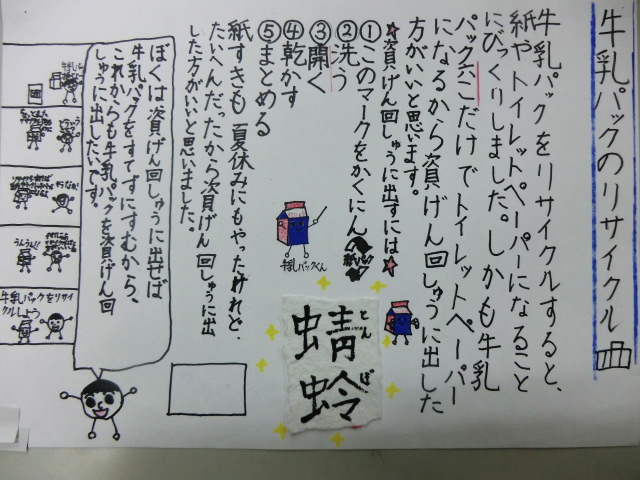 牛乳パックのリサイクル
牛乳パックをリサイクルすると、
紙やトイレットペーパーになること
にびっくりしました。しかも牛乳
パック六こだけでトイレットペーパー
になるから資げん回しゅうに出した
方がいいと思います。
★資げん回しゅうに出すには★
①このマークをかくにん
②洗う
③開く
④乾かす
⑤まとめる
紙すきも夏休みにもやったけれど、
たいへんだったから資げん回しゅうに出
した方がいいと思いました。
牛乳パックくん
蜻蛉
とんぼ
ぼくは資げん回しゅうに出せば
牛乳パックをすてずにすむから、
これからも牛乳パックを資げん回
しゅうに出したいです。
うんうん!!
牛乳パックをリサイ
クルしよう